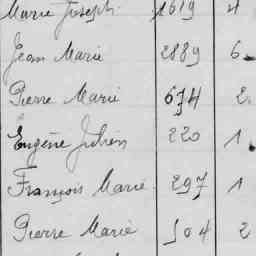 Marie Joseph 1619 4
Jean Marie 2889 6
Pierre Marie 674 2
Eugène Julien 220 1
François Marie 297 1
Pierre Marie 504 2